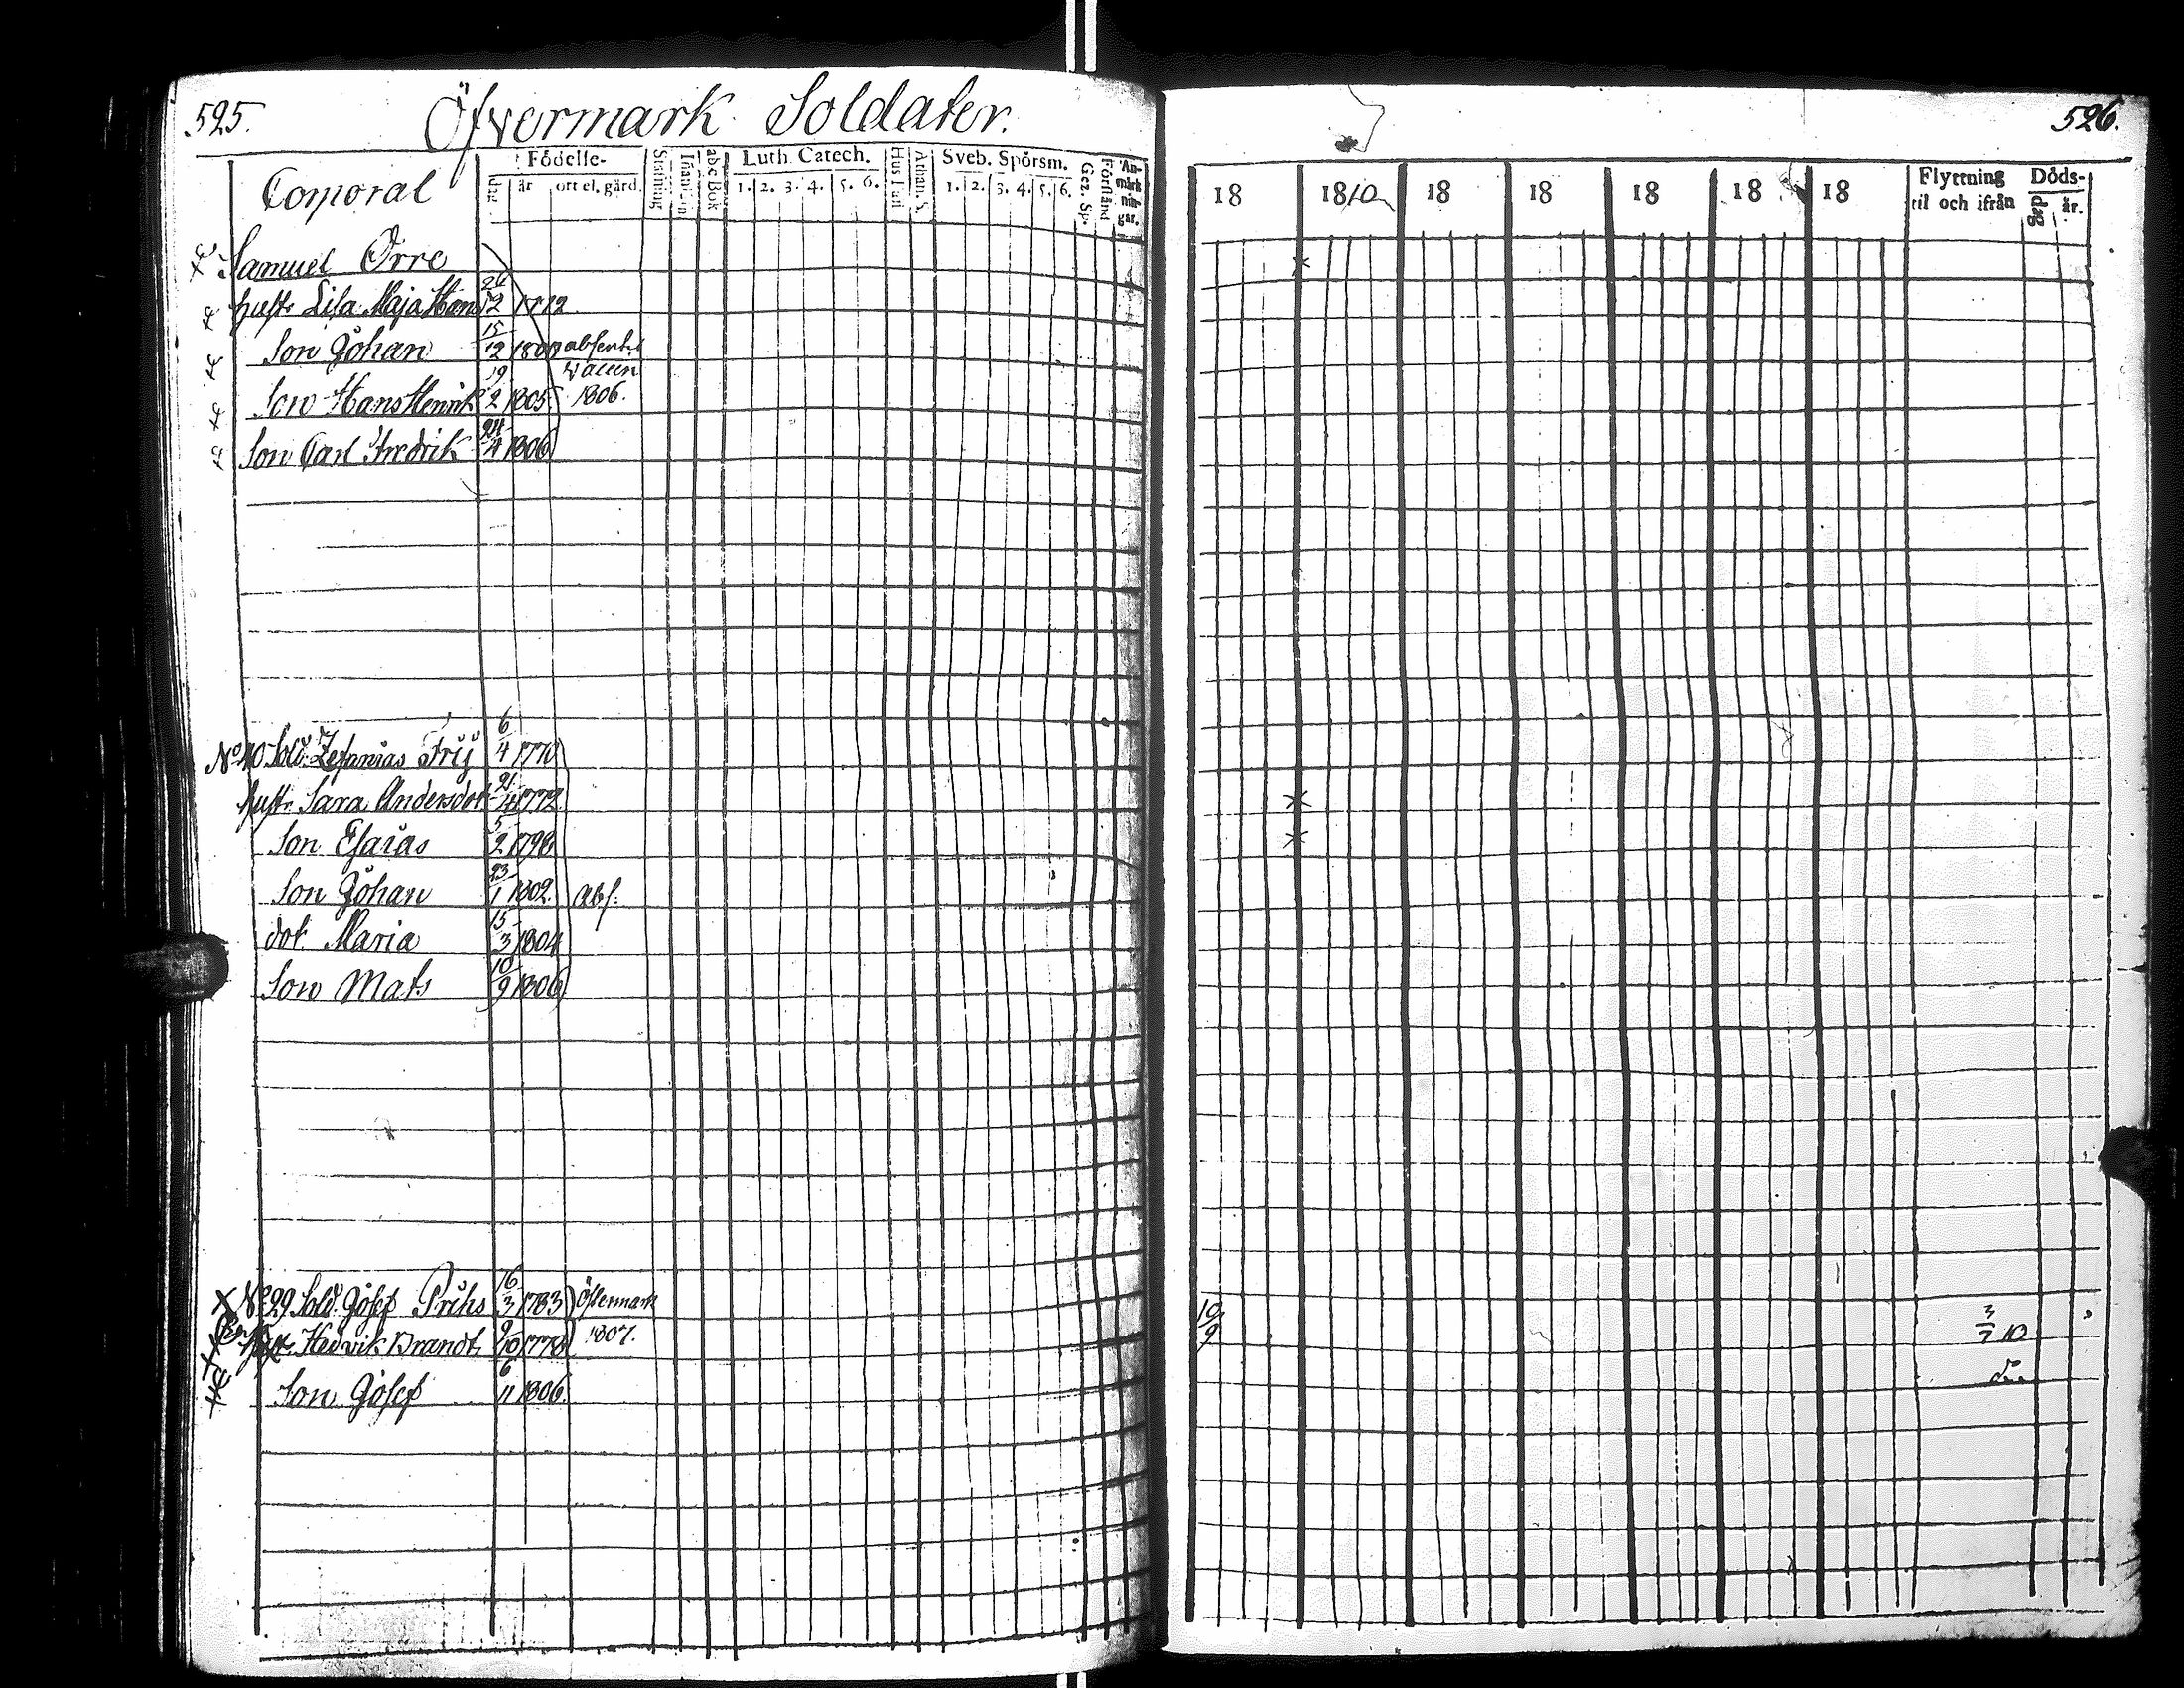 525.
Öfvermark Soldater.
Corporal
Födelse-
dag år ort el. gård.
abc Bok
Luth. Catech.
1. 2. 3. 4. 5. 6.
Hus Tafl.
Athan. S.
Sveb. Spörsm.
1. 2. 3. 4. 5. 6.
Gez. Sp.
Förstånd
An-märk-nin-gar.
Samuel Orre
hustr Lisa Maja 24/12 1772
Son Johan 15/12 1800 absent
Vaccin
Son Hans Henrik 19/2 1805 1806.
Son Carl Fredrik 24/4 1806
No 10 Sold. Zefanias Frij 6/4 1770
hustr. Sara Andersdotr 21/4 1772
Son Esaias 5/2 1798
Son Johan 23/1 1802 abs.
dot Maria 15/3 1804
Son Mats 10/9 1806
No 29 Sold. Josef 16/3 1783 Östermark
hustr. Hedvik Brandt 9/10 1778 1807.
Son Josef 6/11 1806.
526.
18 1810 18 18 18 18 18
Flyttning
til och ifrån
Döds-
dag år.
10/9
3/7 10